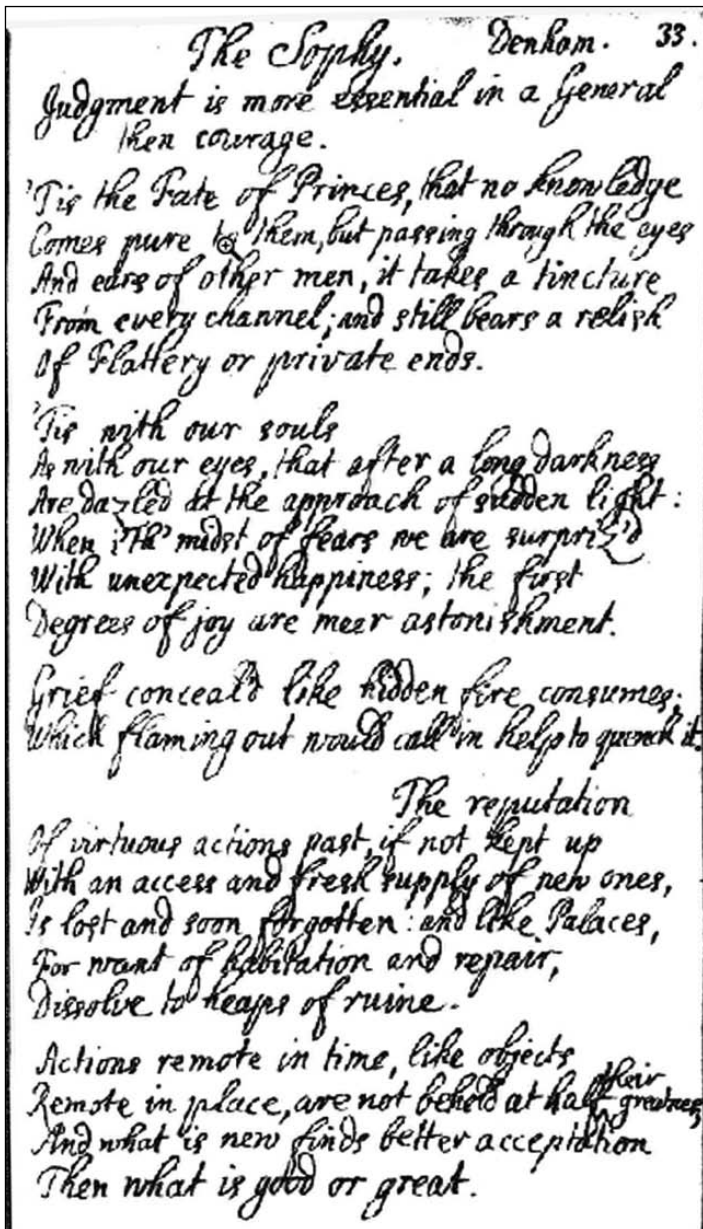 The Sophy. Denham. 33.
Judgment is more essential in a General
then courage.
'Tis the Fate of Princes, that no knowledge
Comes pure to them, but passing through the eyes
And ears of other men, it takes a tincture
From every channel; and still bears a relish
Of Flattery or private ends.
'Tis with our souls
As with our eyes, that after a long darkness
Are dazled at the approach of sudden light:
When i'th' midst of fears we are surpriz'd
With unexpected happiness; the first
Degrees of joy are meer astonishment.
Grief conceal'd like hidden fire consumes;
Which flaming out would call in help to quench it.
The reputation
Of virtuous actions past, if not kept up
With an access and fresh supply of new ones,
Is lost and soon forgotten: and like Palaces,
For want of habitation and repair,
Dissolve to heaps of ruine.
Actions remote in time, like objects
Remote in place, are not beheld at half their greatness,
And what is new finds better acceptation
Then what is good or great.